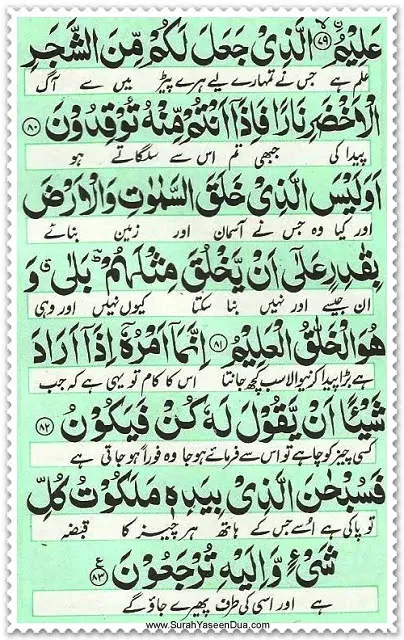 عَلِيْمُ ۙ﴿۷۹﴾ الَّذِىْ جَعَلَ لَكُمْ مِّنَ الشَّجَرِ
علم ہے جس نے تمہارے لیے ہرے پیڑ میں سے آگ
الْاَخْضَرِ نَارًا فَاِذَاۤ اَنْتُمْ مِّنْهُ تُوْقِدُوْنَ ﴿۸۰﴾
پیدا کی جبھی تم اس سے سلگاتے ہو
اَوَلَيْسَ الَّذِىْ خَلَقَ السَّمٰوٰتِ وَالْاَرْضَ
اور کیا وہ جس نے آسمان اور زمین بنائے
بِقٰدِرٍ عَلٰۤى اَنْ يَّخْلُقَ مِثْلَهُمْ ؕ بَلٰى ۗ وَ
ان جیسے اور نہیں بنا سکتا کیوں نہیں اور وہی
هُوَ الْخَلّٰقُ الْعَلِيْمُ ﴿۸۱﴾ اِنَّمَاۤ اَمْرُهٗۤ اِذَاۤ اَرَادَ
ہے بڑا پیدا کرنیوالا سب کچھ جانتا اس کا کام تو یہی ہے کہ جب
شَيْـًٔا اَنْ يَّقُوْلَ لَهٗ كُنْ فَيَكُوْنُ ﴿۸۲﴾
کسی چیز کو چاہے تو اس سے فرمائے ہوجا وہ فوراً ہوجاتی ہے
فَسُبْحٰنَ الَّذِىْ بِيَدِهٖ مَلَكُوْتُ كُلِّ
تو پاکی ہے اسے جس کے ہاتھ ہر چیز کا قبضہ
شَىْءٍ وَّاِلَيْهِ تُرْجَعُوْنَ ﴿۸۳﴾ ع
ہے اور اسی کی طرف پھیرے جاؤ گے
www.SurahYaseenDua.com